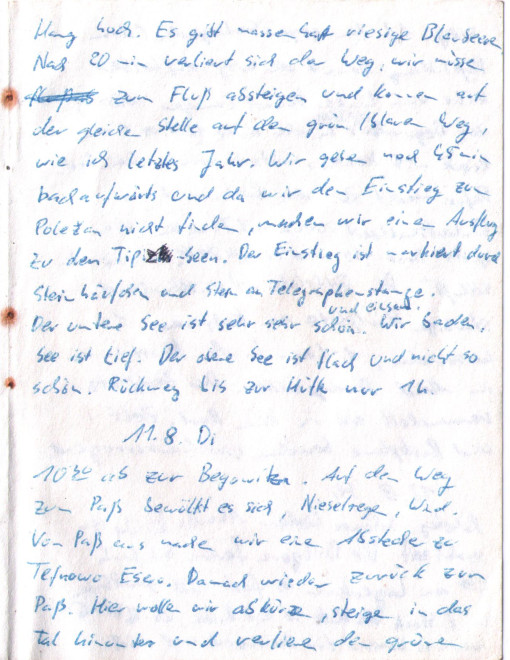 Hang hoch. Es gibt massenhaft riesige Blaubeeren.
Nach 20 min verliert sich der Weg, wir müssen
zum Fluß absteigen und kommen auf
der gleichen Stelle auf den grün/blauen Weg,
wie ich letztes Jahr. Wir gehen noch 45 min
bachaufwärts und da wir den Einstieg zum
Poležan nicht finden, machen wir einen Ausflug
zu den Tipiz-Seen. Der Einstieg ist markiert durch
Steinhäufchen und Stern an Telegraphenstange.
und einsam.
Der untere See ist sehr sehr schön. Wir baden.
See ist tief. Der obere See ist flach und nicht so
schön. Rückweg bis zur Hütte nur 1h.
11.8. Di
10³⁰ ab zur Begowitza. Auf dem Weg
zum Paß bewölkt es sich, Nieselregen, Wind.
Vom Paß aus machen wir eine Abstecher zu
Tefnowo Esero. Danach wieder zurück zum
Paß. Hier wollen wir abkürzen, steigen in das
Tal hinunter und verlieren den grünen